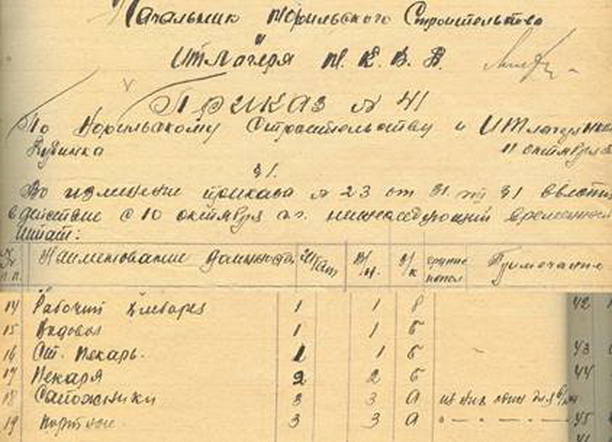 Начальник Норильского Строительства
и
ИТМЛагеря Н. К. В. Д.
Приказ № 41
По Норильскому Строительству и ИТМлагеря
Дудинка 11 октября
§ 1.
Во изменение приказа № 23 от 31 31 ввести
в действие с 10 октября с.г. нижеследующий временный
штат:
№ п.п. Наименование должности Штат В/н. З/к Примечание
14 Рабочий 1 1 б 42
15 Водовоз 1 1 б
16 Ст. Пекарь. 1 1 б 43
17 Пекаря 2 2 б 44
18 Сапожники 3 3 а
19 Портные 3 3 а 45